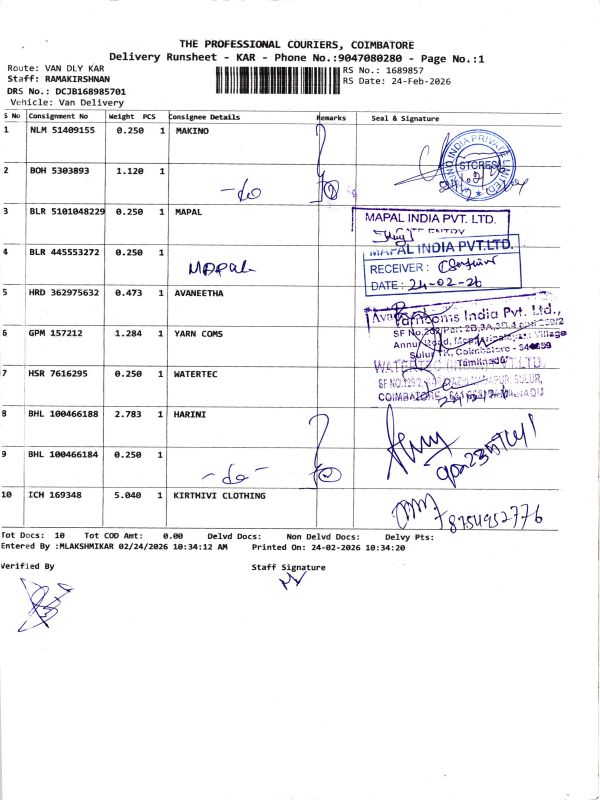 THE PROFESSIONAL COURIERS, COIMBATORE
Delivery Runsheet - KAR - Phone No.:9047080280 - Page No.:1
Route: VAN DLY KAR
RS No.: 1689857
Staff: RAMAKIRSHNAN
RS Date: 24-Feb-2026
DRS No.: DCJB168985701
Vehicle: Van Delivery
S No Consignment No Weight PCS Consignee Details Remarks Seal & Signature
1 NLM 51409155 0.250 1 MAKINO
STORES
2 BOH 5303893 1.120 1
-do
3 BLR 5101048229 0.250 1 MAPAL
MAPAL INDIA PVT. LTD.
GATE ENTRY
4 BLR 445553272 0.250 1 Mapal
MAPAL INDIA PVT.LTD.
RECEIVER :
DATE : 24-02-26
5 HRD 362975632 0.473 1 AVANEETHA
Yarncoms India Pvt. Ltd.,
6 GPM 157212 1.284 1 YARN COMS
Sulur TK, Coimbatore -
Tamilnadu
7 HSR 7616295 0.250 1 WATERTEC
WATERTEC PVT. LTD.
COIMBATORE
8 BHL 100466188 2.783 1 HARINI
9 BHL 100466184 0.250 1
-do-
10 ICH 169348 5.040 1 KIRTHIVI CLOTHING
8754952776
Tot Docs: 10 Tot COD Amt: 0.00 Delvd Docs: Non Delvd Docs: Delvy Pts:
Entered By :MLAKSHMIKAR 02/24/2026 10:34:12 AM Printed On: 24-02-2026 10:34:20
Verified By
Staff Signature